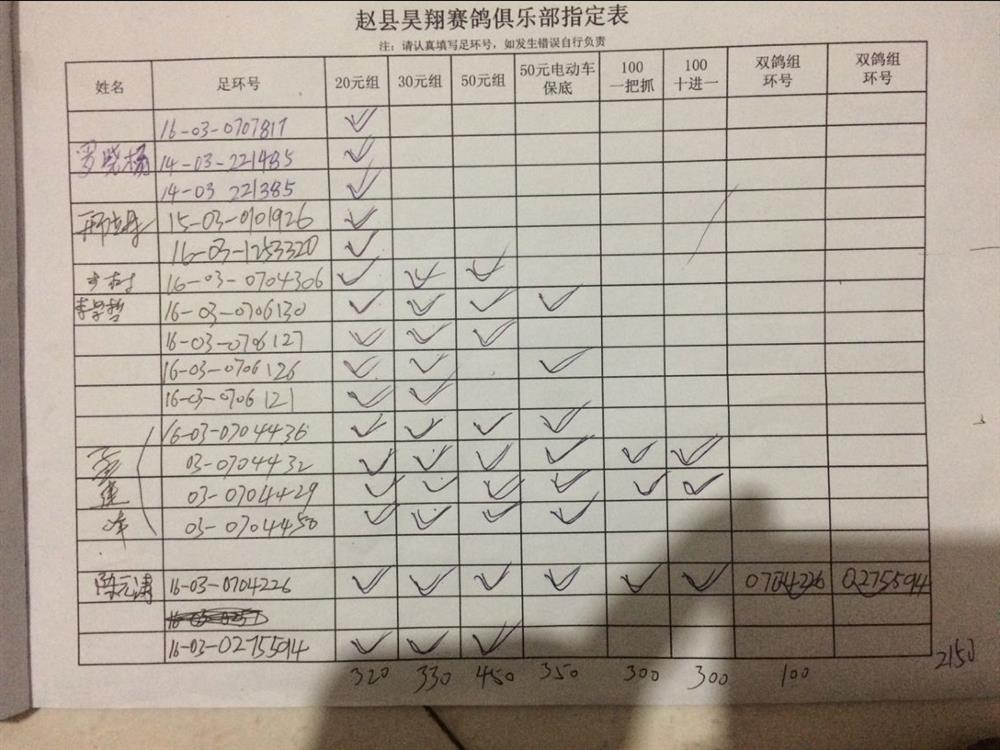 赵县昊翔赛鸽俱乐部指定表
注：请认真填写足环号，如发生错误自行负责
姓名 足环号 20元组 30元组 50元组 50元电动车保底 100一把抓 100十进一 双鸽组环号 双鸽组环号
16-03-0707817 ✓
罗晓楠 14-03-221485 ✓
14-03 221385 ✓
15-03-0101926 ✓
16-03-1253320 ✓
16-03-0704306 ✓ ✓ ✓
16-03-0706130 ✓ ✓ ✓ ✓
16-03-0706127 ✓ ✓ ✓
16-03-0706126 ✓ ✓ ✓
16-03-0706121 ✓ ✓
16-03-0704436 ✓ ✓ ✓ ✓
03-0704432 ✓ ✓ ✓ ✓ ✓ ✓
建 03-0704429 ✓ ✓ ✓ ✓ ✓ ✓
03-0704450 ✓ ✓ ✓ ✓
陈元涛 16-03-0704226 ✓ ✓ ✓ ✓ ✓ ✓ 0704226 0275594
16-03-0275594 ✓ ✓ ✓
320 330 450 350 300 300 100 2150